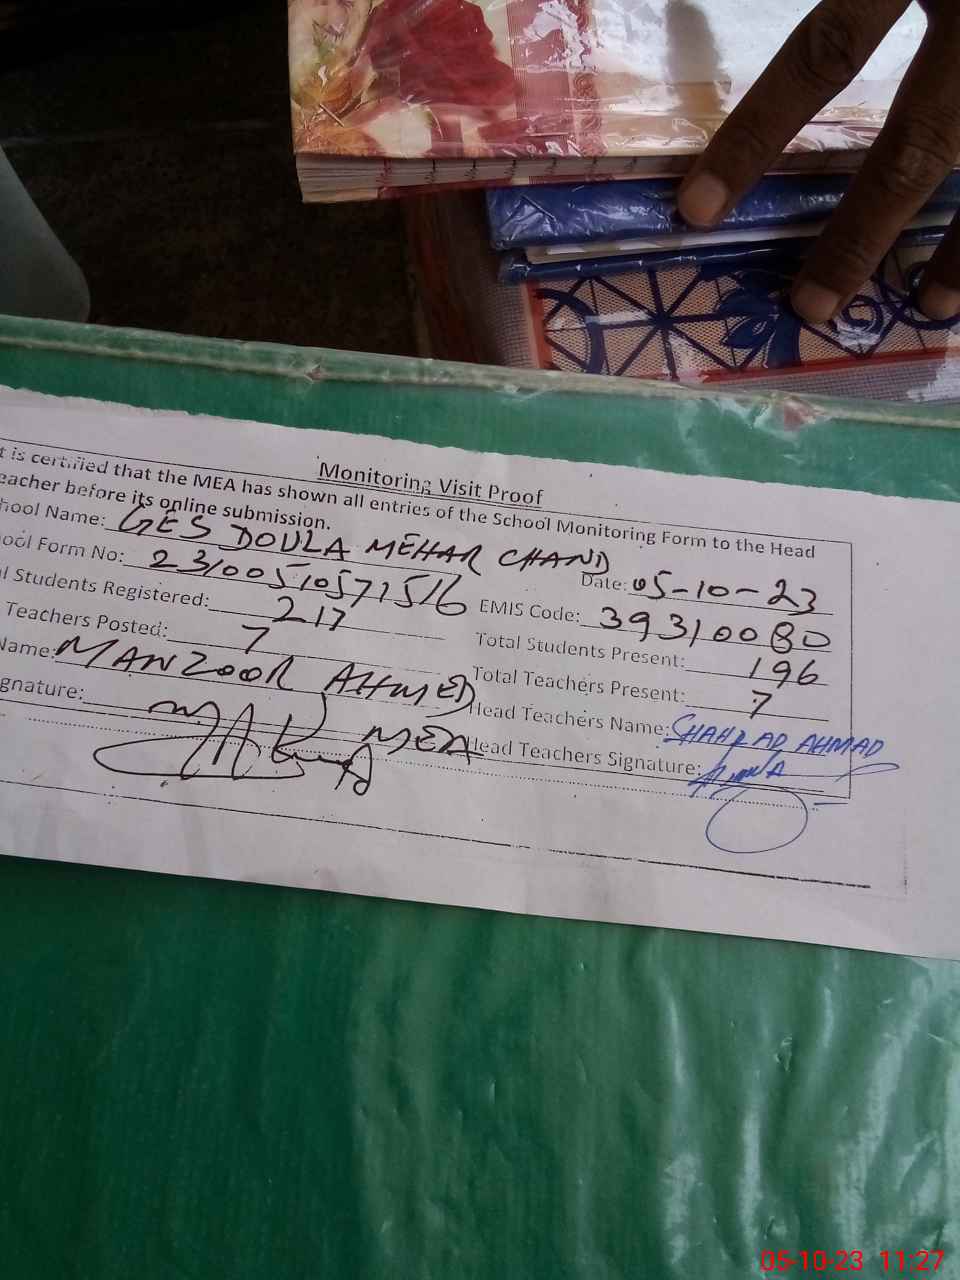 Monitoring Visit Proof
t is certified that the MEA has shown all entries of the School Monitoring Form to the Head
eacher before its online submission.
hool Name: GES DOULA MEHAR CHAND Date: 05-10-23
ool Form No: 23100510571516 EMIS Code: 39310080
l Students Registered: 217 Total Students Present: 196
Teachers Posted: 7 Total Teachers Present: 7
Name: MANZOOR AHMED Head Teachers Name: SHAHZAD AHMAD
gnature: MEA Head Teachers Signature:
05-10-23 11:27